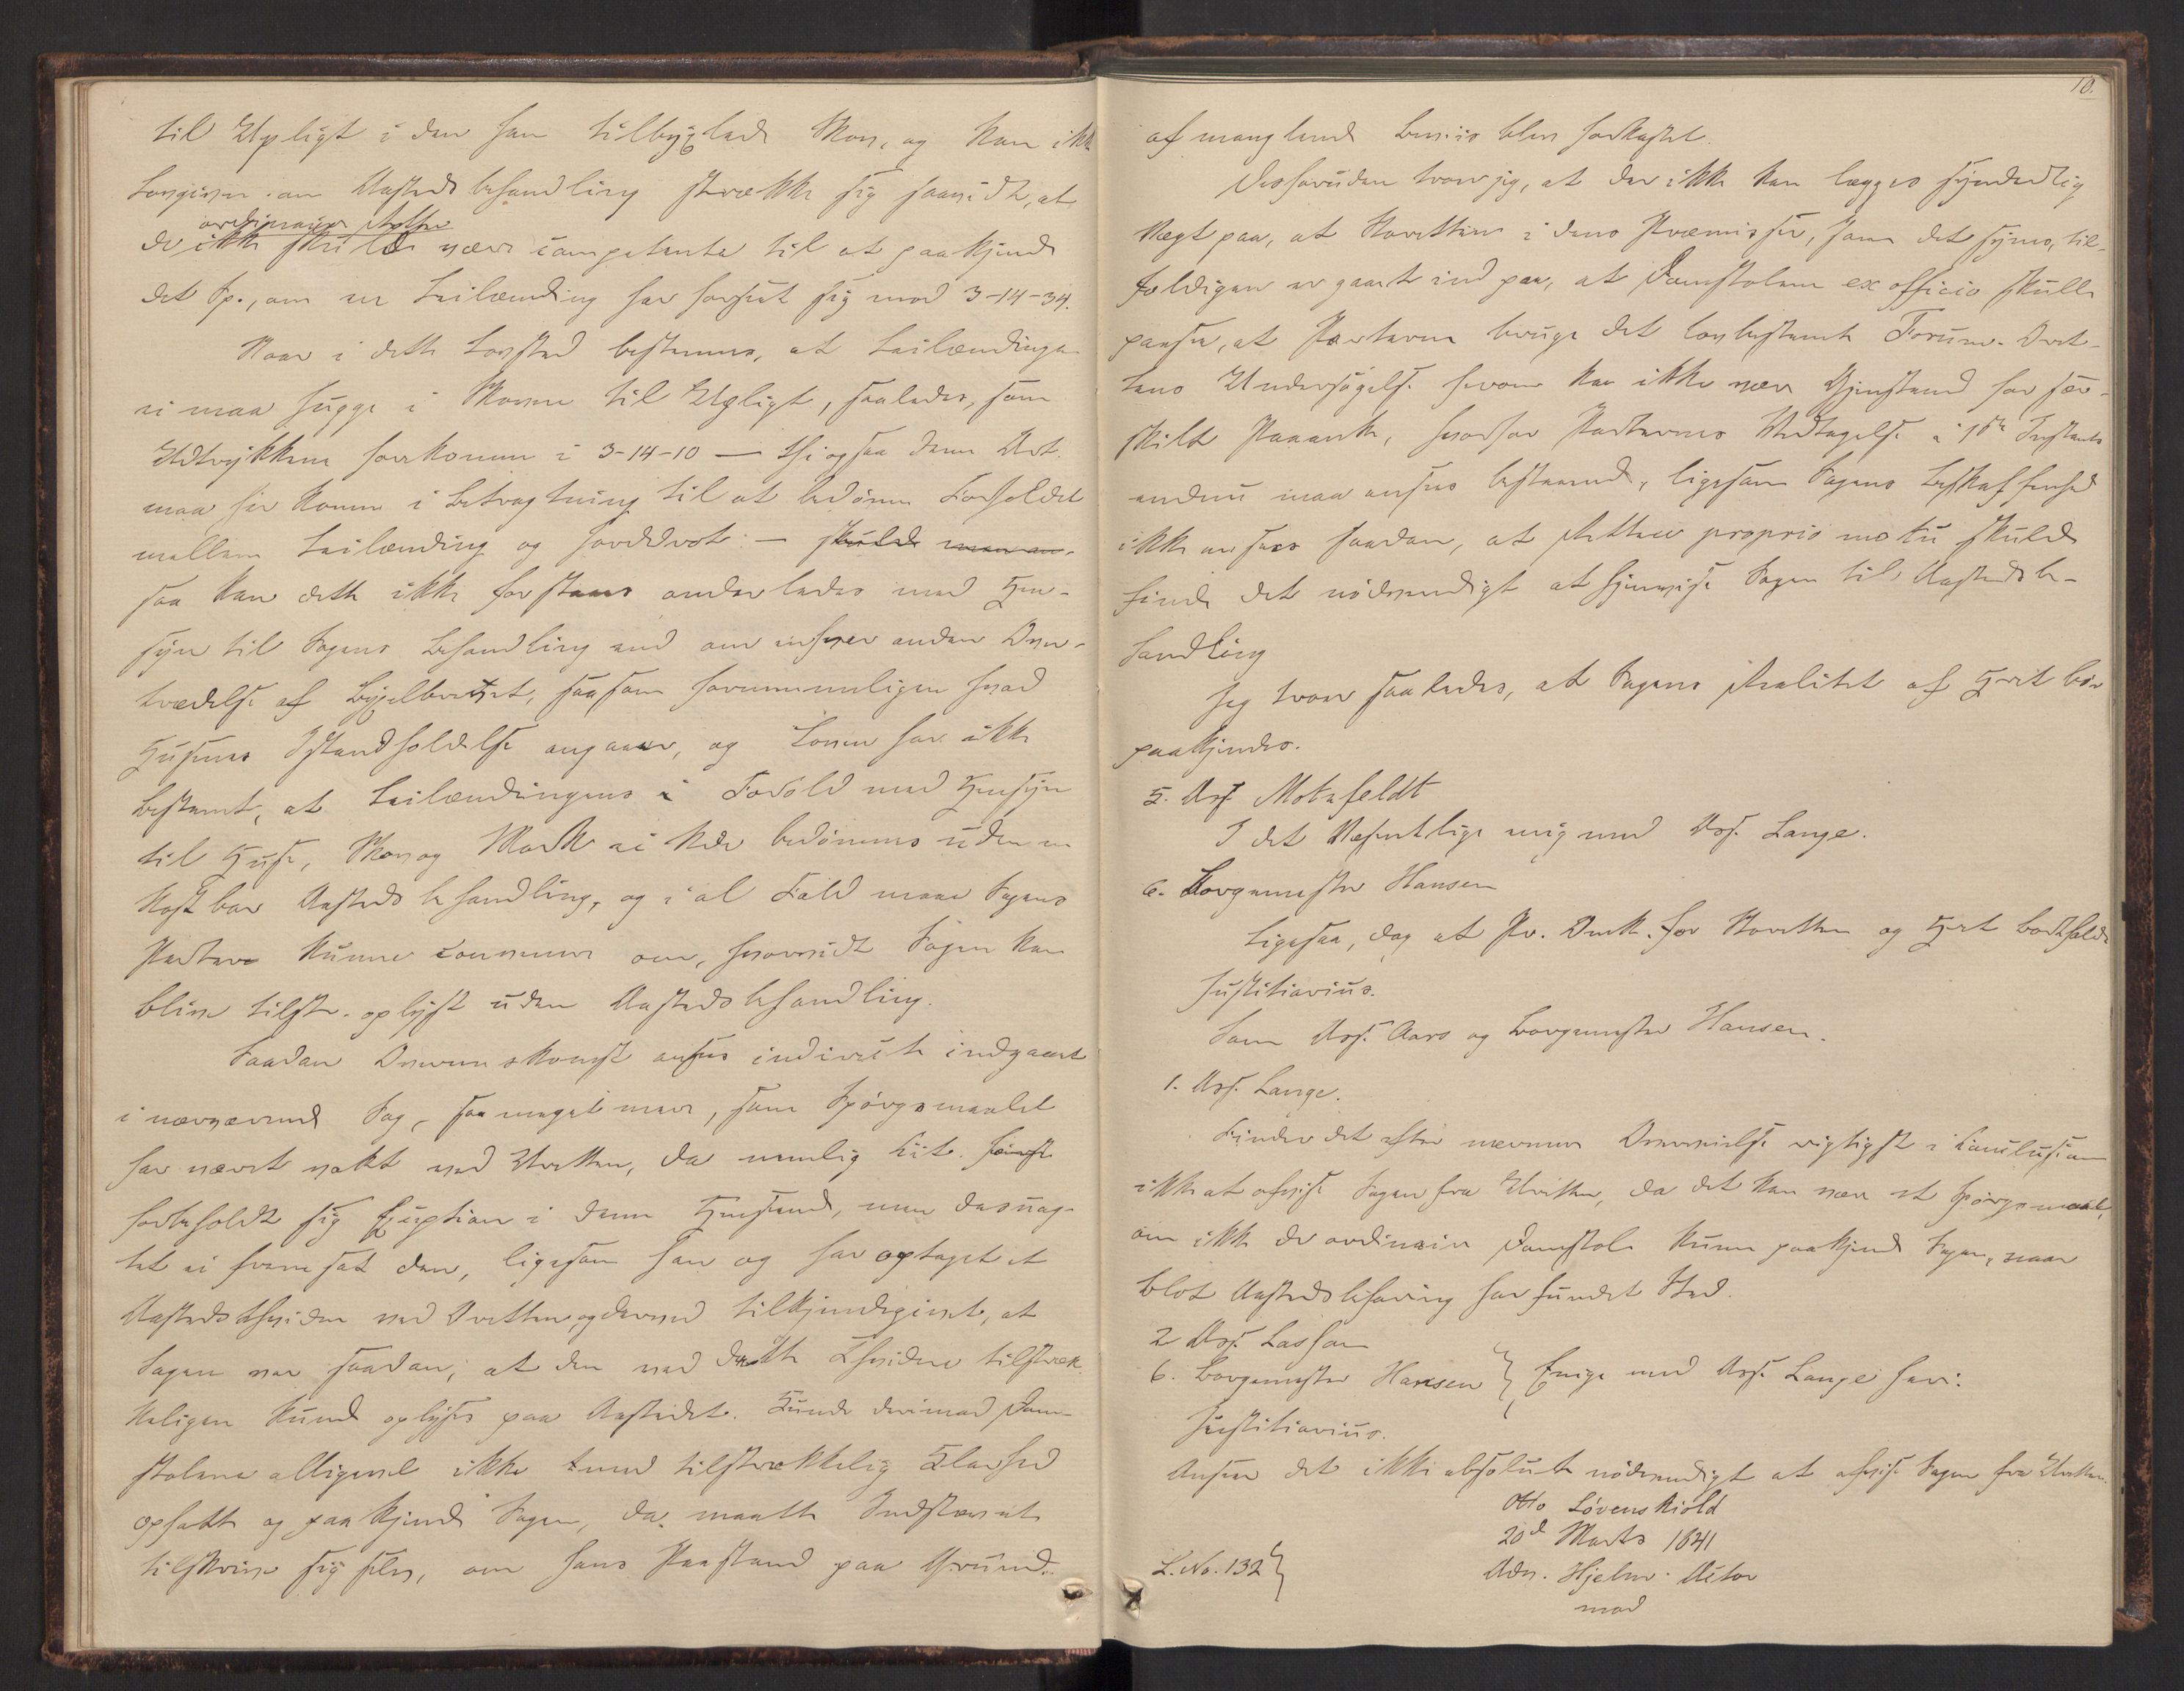 til Upligt i den ham tilbyxlede Skov, og kan ikke
Lovgivn. om Aasteds behandling strække sig saavidt, at
ordinaire Retter
de ikke skulde være competente til at paakjende
det Sp., om en Leilænding har forseet sig mod 3-14-34.
Naar i dette Lovsted bestemmes, at Leilændingen
ei maa hugge i Skoven til Upligt, saaledes, som
Udtrykkene forekomme i 3-14-10 – thi ogsaa denne Art.
maa her komme i Betragtning til at bedömme Forholdet
mellem Leilænding og Jorddrot – skulde man an-
saa kan dette ikke forstaaes anderledes med Hen-
syn til Sagens Behandling end om enhver anden Over-
trædelse af Bygselbrevet, saasom fornemmeligen hvad
Husenes Istandholdelse angaaer, og Loven har ikke
bestemt, at Leilændingens Forhold med Hensyn
til Huse, Skov og Mark ei kan bedömmes uden en
kostbar Aasteds behandling, og i al Fald maae Sagens
Parter kunne convenere om, hvorvidt Sagen kan
blive tilstr. oplyst uden Aastedsbehandling.
Saadan Overenskomst ansees indirecte indgaaet
i nærværende Sag, saa meget mere, som Spörgsmaalet
har været vakt ved Uretten, da nemlig Cit. först
forbeholdt sig Exception i denne Henseende, men desuag-
tet ei fremsat den, ligesom han og har optaget et
Aastedsthvidne ved Uretten, og derved tilkjendegivet, at
Sagen var saadan, at den ved dette Thvidne tilstræk-
keligen kunde oplyses paa Aastedet. Kunde derimod Dom-
stolene alligevel ikke med tilstrækkelig Klarhed
opfatte og paakjende Sagen, da maatte Indstævnte
tilskrive sig selv, om hans Paastand paa Grund
10.
af manglende Beviis blev forkastet.
Desforuden troer jeg, at der ikke kan lægges synderlig
Vægt paa, at Stovretten i dens Præmisser, som det synes, til-
fældigen er gaaet ind paa, at Domstolene ex officio skulle
paasee, at Parterne bruge det lovbestemte Forum. Ret-
tens Undersögelse herom kan ikke være Gjenstand for sær-
skilt Paaanke, hvorfor Parternes Vedtagelse i 1ste Instants
endnu maa ansees bestaaende, ligesom Sagens Beskaffenhed
ikke ansees saadan, at Retten proprio motu skulde
finde det nödvendigt at henvise Sagen til Aastedsbe-
handling
Jeg troer saaledes, at Sagens Realitet af H.ret bör
paakjendes.
5. Ass. Motzfeldt
I det Væsentlige enig med Ass. Lange.
6. Borgemester Hansen
Ligesaa, dog at Pr. Omk. for Stovretten og H.ret bortfalde
Justitiarius.
Som Ass. Aars og Borgemester Hansen.
1. Ass. Lange.
Finder det efter nærmere Overveielse rigtigst i Conclusionen
ikke at afvise Sagen fra Uretten, da det kan være et Spörgsmaal,
om ikke de ordinaire Domstole kunne paakjende Sagen, naar
blot Aastedsbefaring har fundet Sted.
2 Ass. Lasson
6. Borgemester Hansen } Enige med Ass. Lange heri.
Justitiarius.
Anseer det ikke absolut nödvendigt at afvise Sagen fra Uretten.
Otto Lövenskiold
20d Marts 1841
L. No. 132 }
Adv. Hjelm Actor
mod